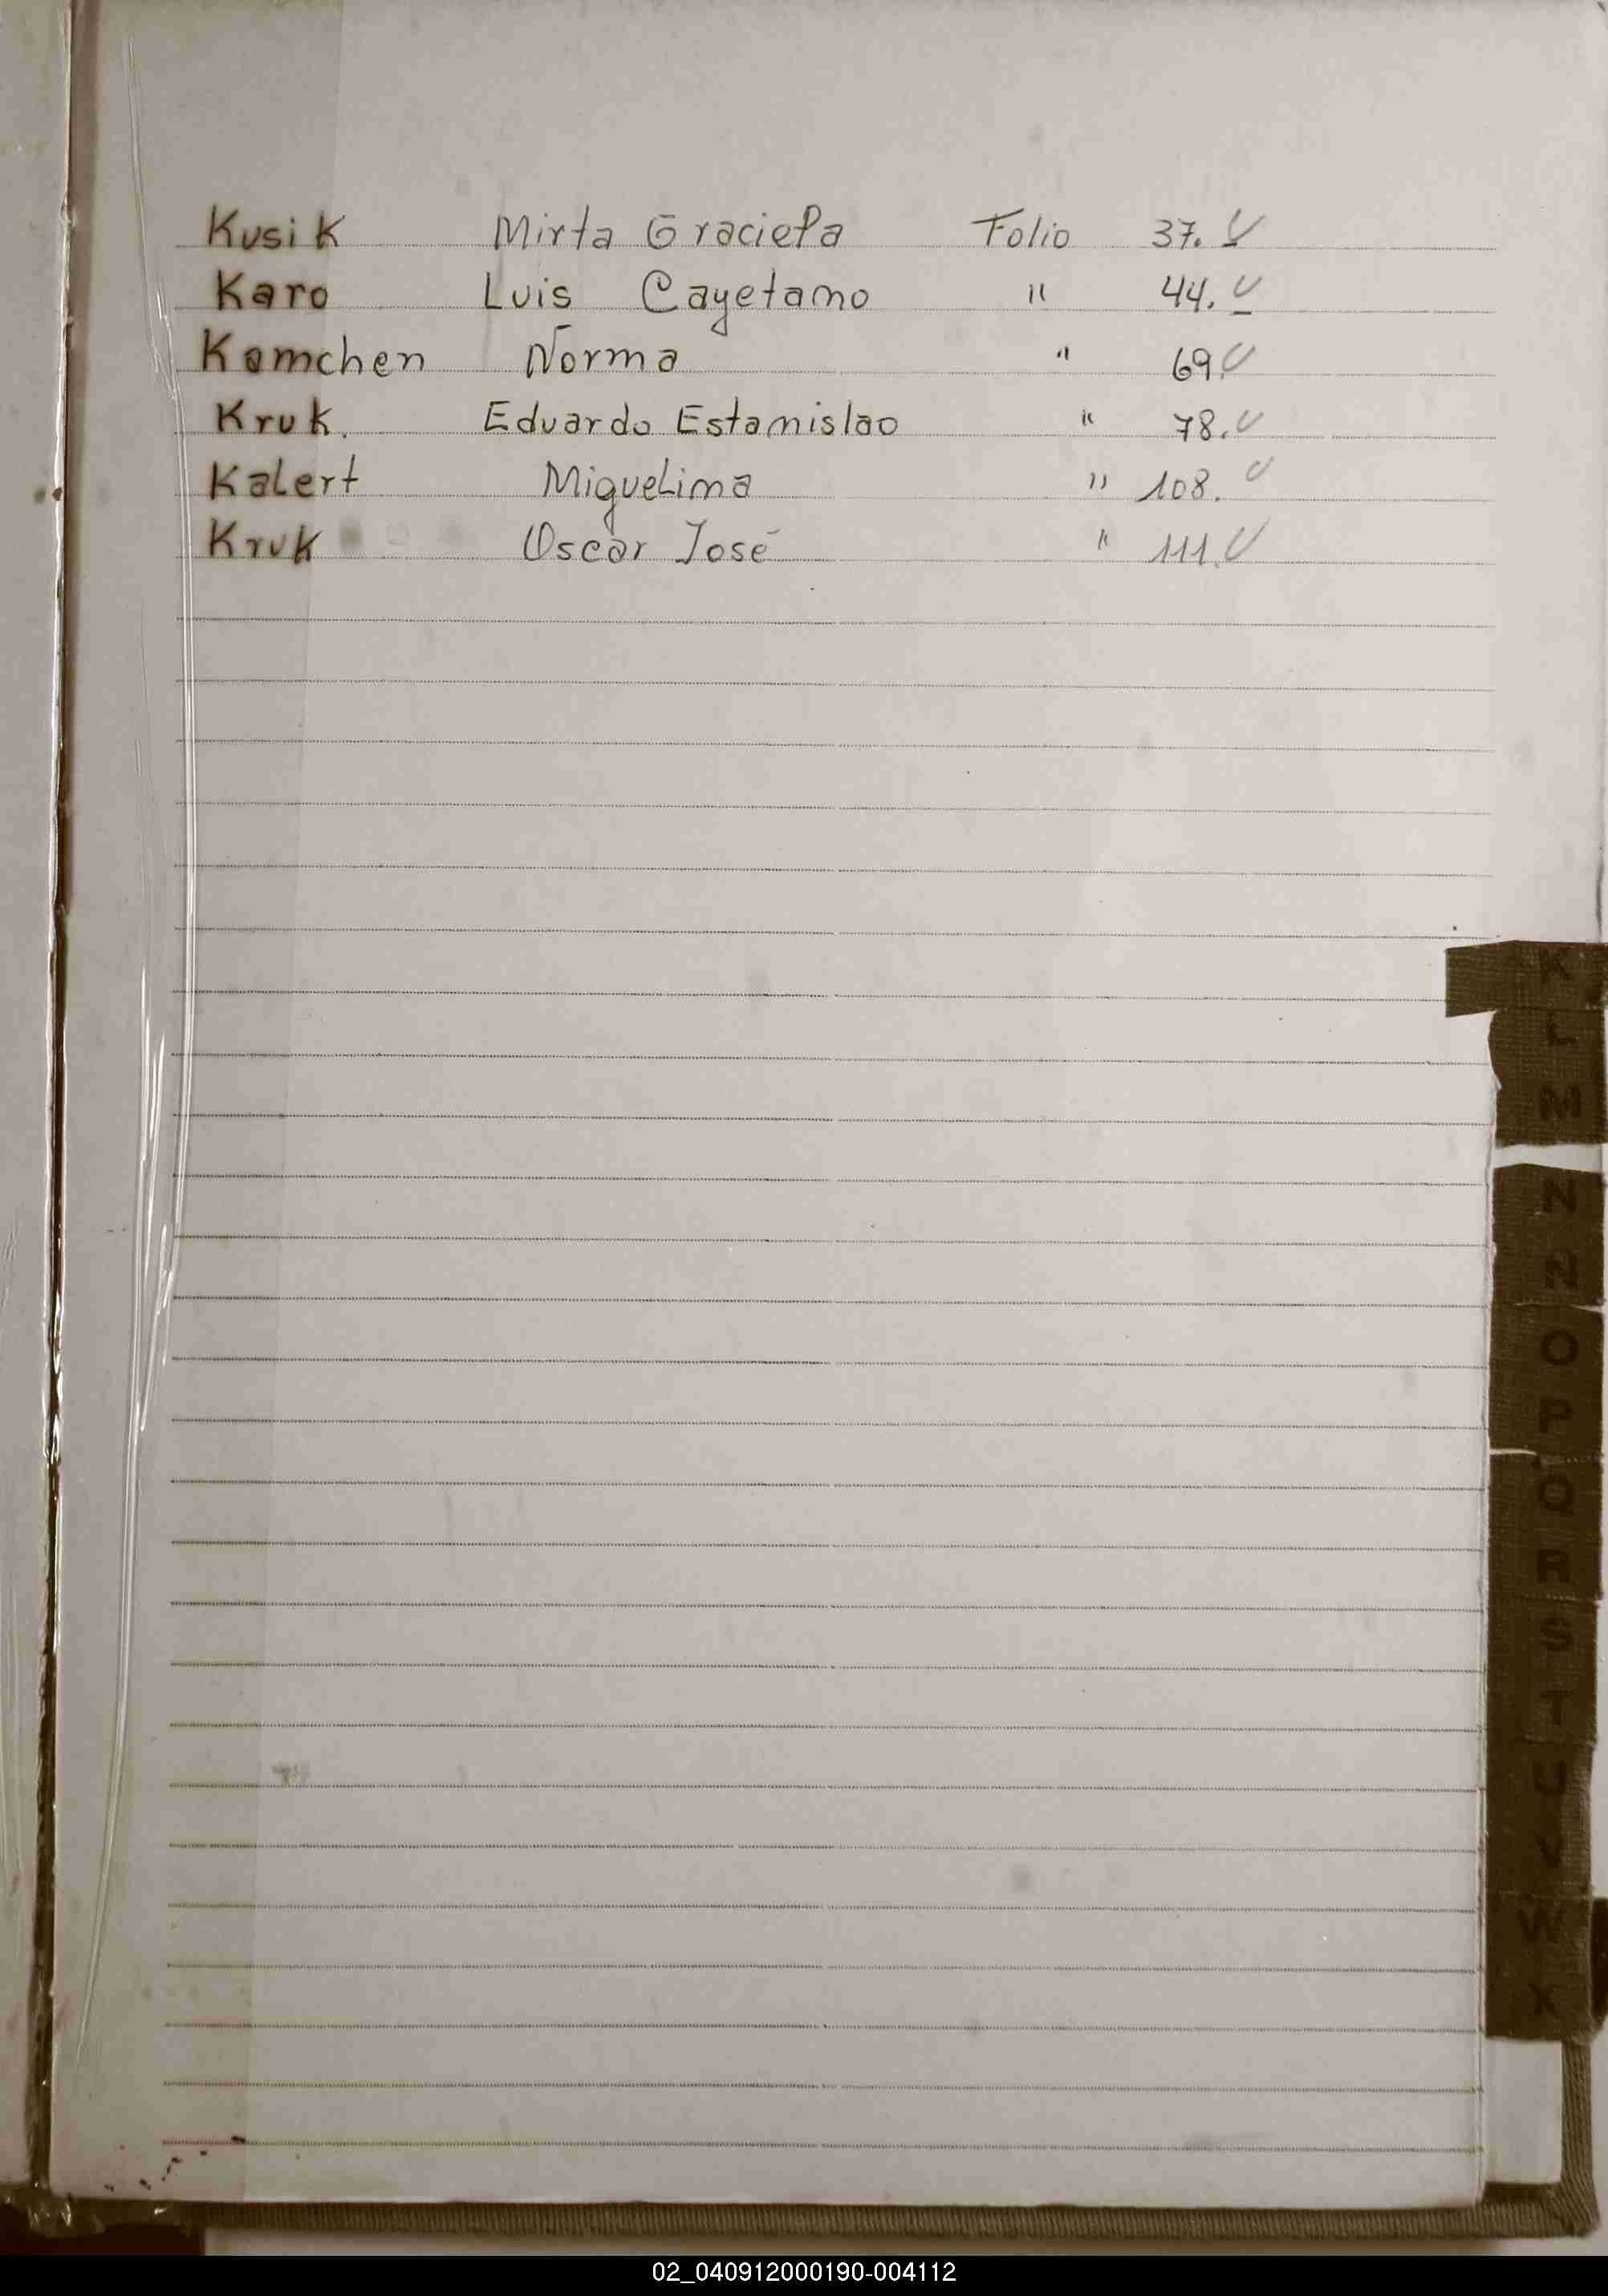 Kusik Mirta Graciela Folio 37. V
Karo Luis Cayetano " 44. V
Kamchen Norma " 69. V
Kruk. Eduardo Estanislao " 78. V
Kalert Miguelina " 108. V
Kruk Oscar José " 111. V
K
L
M
N
Ñ
O
P
Q
R
S
T
U
V
W
X
02_040912000190-004112